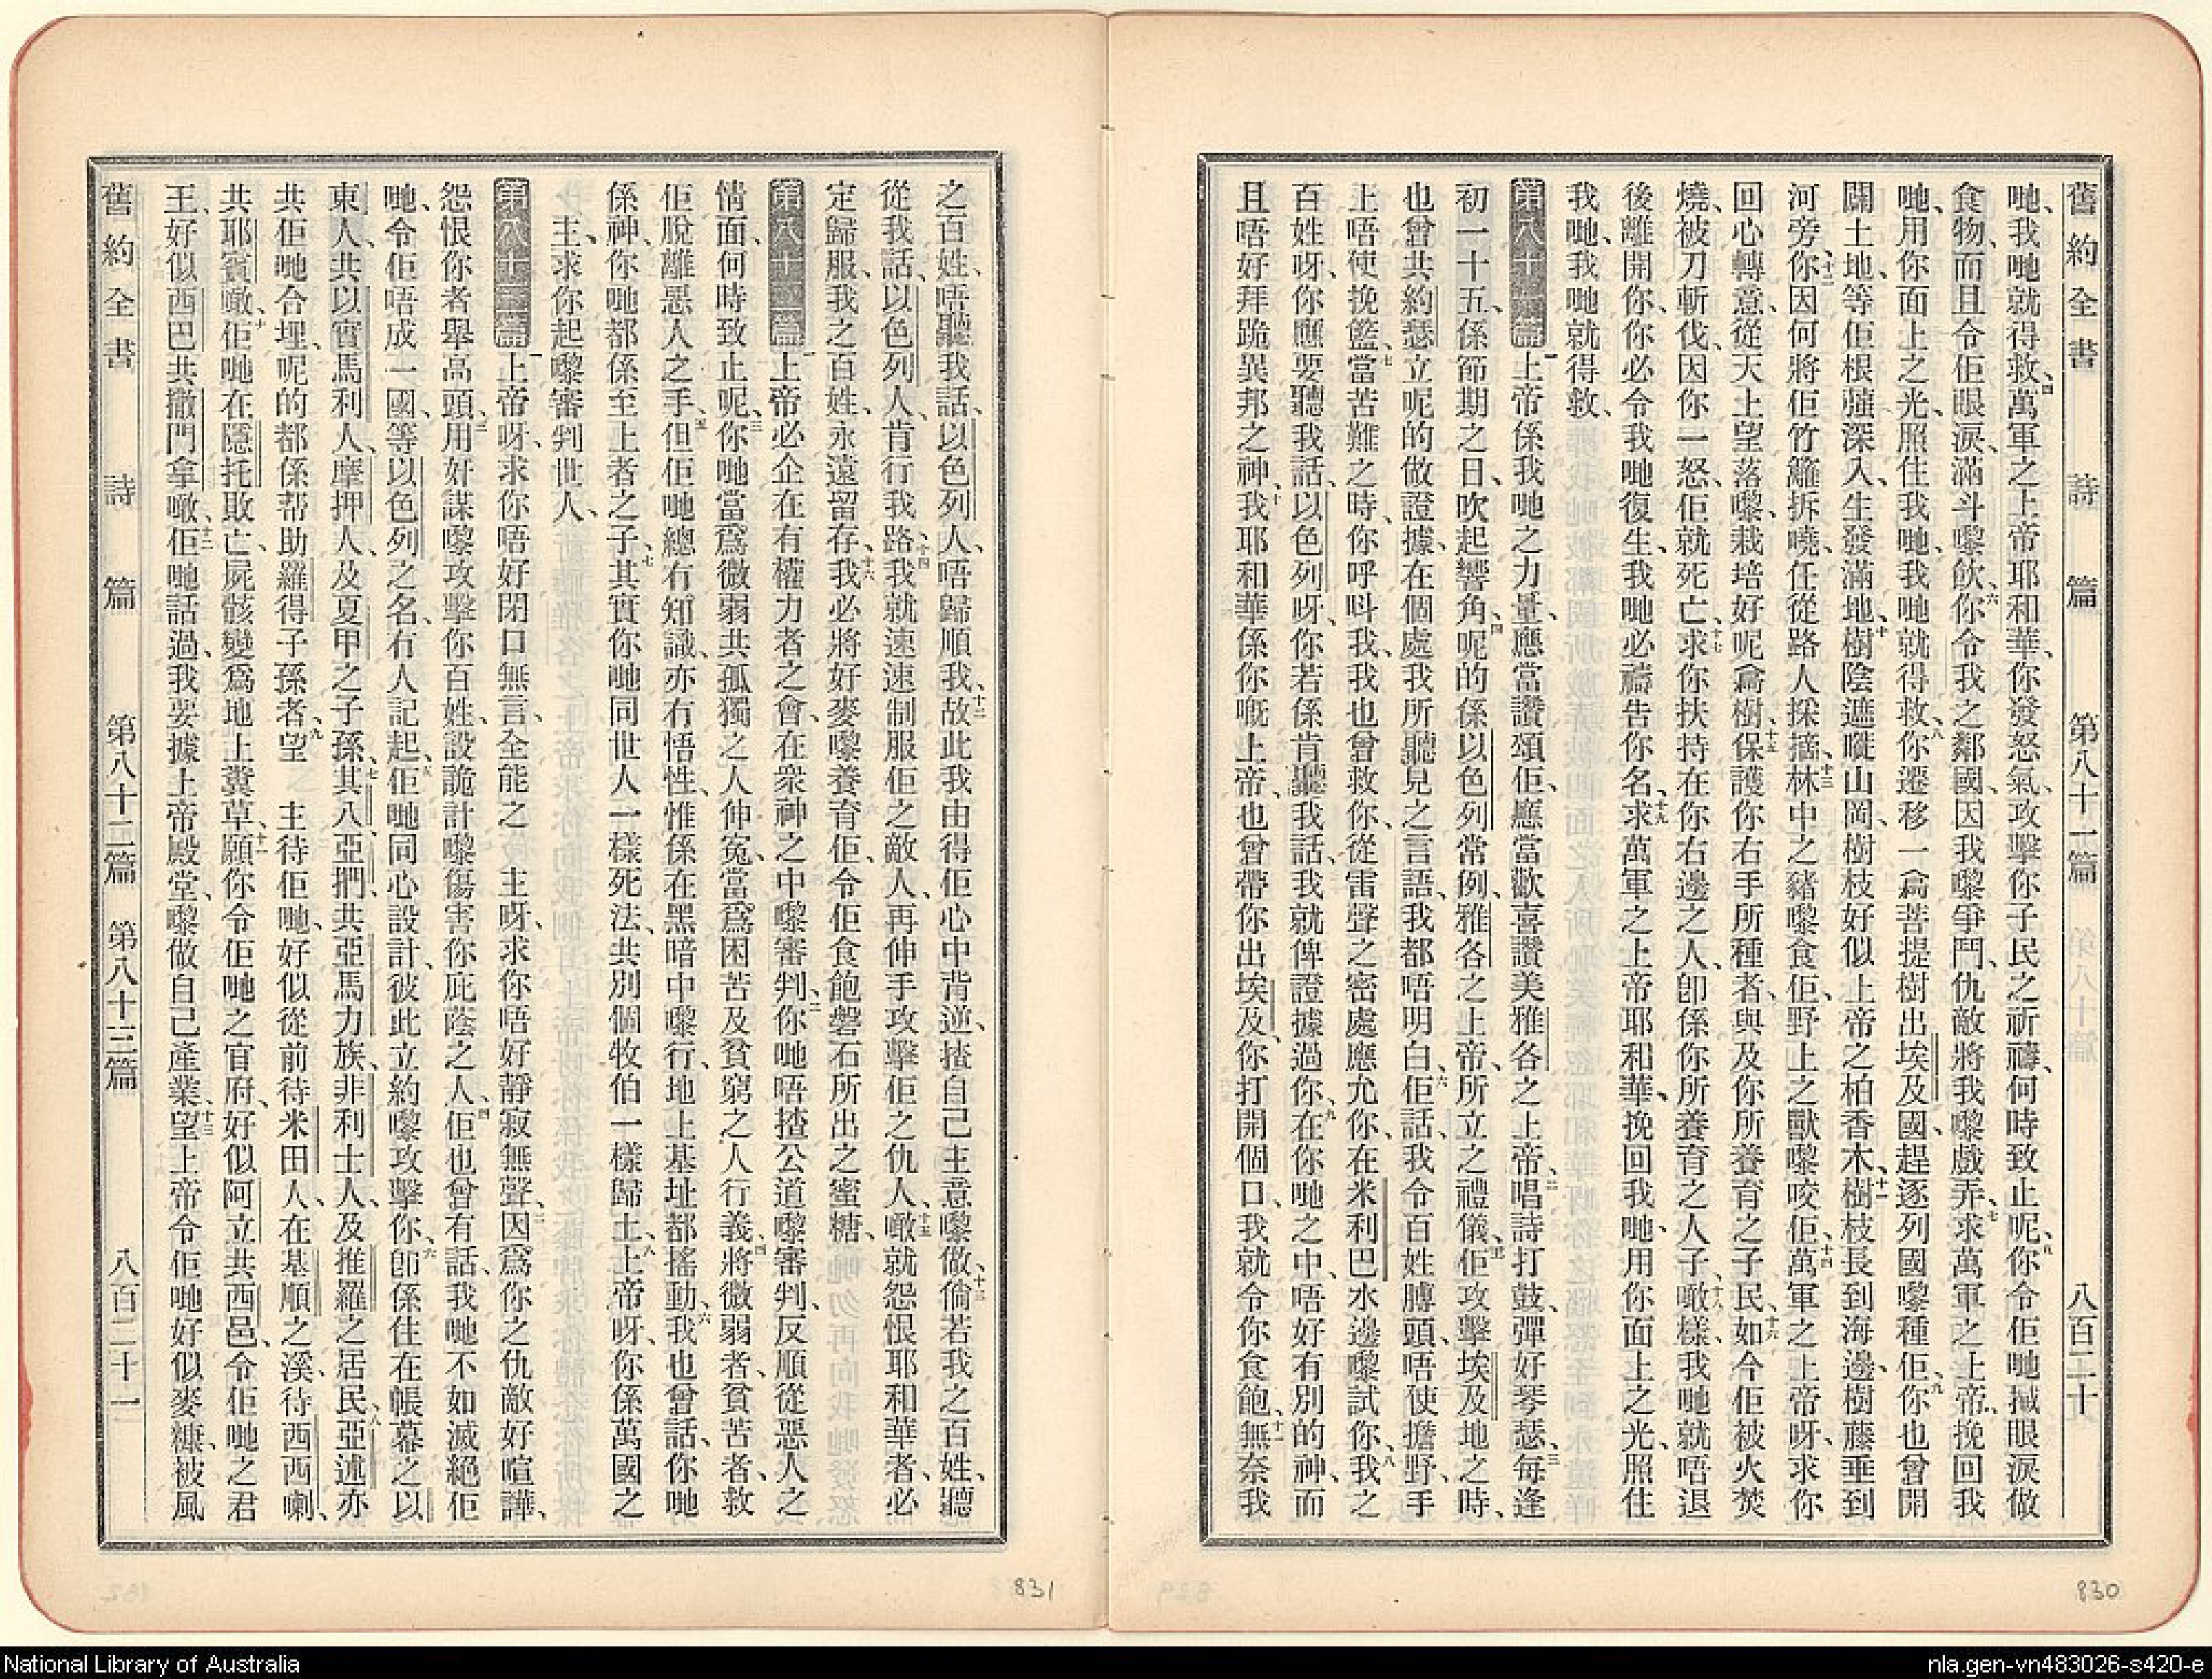 舊約全書 詩篇 第八十一篇 八百二十
哋、我哋就得救、四萬軍之上帝耶和華、你發怒氣、攻擊你子民之祈禱、何時致止呢、五你令佢哋揻眼淚做
食物、而且令佢眼淚滿斗嚟飲、六你令我之鄰國、因我嚟爭鬥、仇敵將我嚟戲弄、七求萬軍之上帝、挽回我
哋、用你面上之光、照住我哋、我哋就得救、八你遷移一樖菩提樹出埃及國、趕逐列國嚟種佢、九你也曾開
闢土地、等佢根蔃深入、生發滿地、十樹陰遮嘥山岡、樹枝好似上帝之柏香木、十一樹枝長到海邊、樹藤垂到
河旁、十二你因何將佢竹籬拆嘵、任從路人採摘、十三林中之豬嚟食佢、野上之獸嚟咬佢、十四萬軍之上帝呀、求你
回心轉意、從天上望落嚟、栽培好呢樖樹、十五保護你右手所種者、與及你所養育之子民、十六如今佢被火焚
燒、被刀斬伐、因你一怒、佢就死亡、十七求你扶持在你右邊之人、卽係你所養育之人子、十八噉樣、我哋就唔退
後離開你、你必令我哋復生、我哋必禱告你名、十九求萬軍之上帝耶和華、挽回我哋、用你面上之光、照住
我哋、我哋就得救、
第八十一篇 一上帝係我哋之力量、應當讚頌佢、應當歡喜讚美雅各之上帝、二唱詩打鼓、彈好琴瑟、三每逢
初一十五、係節期之日、吹起響角、四呢的係以色列常例、雅各之上帝、所立之禮儀、五佢攻擊埃及地之時、
也曾共約瑟立呢的做證據、在個處我所聽見之言語、我都唔明白、六佢話、我令百姓膊頭、唔使擔野、手
上唔使挽籃、七當苦難之時、你呼呌我、我也曾救你、從雷聲之密處應允你、在米利巴水邊嚟試你、八我之
百姓呀、你應要聽我話、以色列呀、你若係肯聽我話、我就俾證據過你、九在你哋之中、唔好有別的神、而
且唔好拜跪異邦之神、十我耶和華係你嘅上帝、也曾帶你出埃及、你打開個口、我就令你食飽、十一無奈我
之百姓、唔聽我話、以色列人、唔歸順我、十二故此我由得佢心中背逆、揸自己主意嚟做、十三倘若我之百姓、聽
從我話、以色列人、肯行我路、十四我就速速制服佢之敵人、再伸手攻擊佢之仇人、十五噉就怨恨耶和華者、必
定歸服、我之百姓、永遠留存、十六我必將好麥嚟養育佢、令佢食飽磐石所出之蜜糖、
第八十二篇 一上帝必企在有權力者之會、在衆神之中嚟審判、二你哋唔揸公道嚟審判、反順從惡人之
情面、何時致止呢、三你哋當爲微弱共孤獨之人伸冤、當爲困苦及貧窮之人行義、四將微弱者、貧苦者、救
佢脫離惡人之手、五但佢哋總冇知識、亦冇悟性、惟係在黑暗中嚟行、地上基址都搖動、六我也曾話、你哋
係神、你哋都係至上者之子、七其實你哋同世人一樣死法、共別個牧伯一樣歸土、八上帝呀、你係萬國之
主、求你起嚟審判世人、
第八十三篇 一上帝呀、求你唔好閉口無言、全能之 主呀、求你唔好靜寂無聲、二因爲你之仇敵好喧譁、
怨恨你者舉高頭、三用奸謀嚟攻擊你百姓、設詭計嚟傷害你庇蔭之人、四佢也曾有話、我哋不如滅絕佢
哋、令佢唔成一國、等以色列之名、冇人記起、五佢哋同心設計、彼此立約嚟攻擊你、六卽係住在帳幕之以
東人、共以實馬利人、摩押人、及夏甲之子孫、七其八亞捫、共亞馬力族、非利士人、及推羅之居民、八亞述亦
共佢哋合埋、呢的都係帮助羅得子孫者、九望 主待佢哋、好似從前待米田人、在基順之溪、待西西喇、
共耶賓噉、十佢哋在隱托敗亡、屍骸變爲地上糞草、十一願你令佢哋之官府、好似阿立共西邑、令佢哋之君
王、好似西巴共撒門拿噉、十二佢哋話過、我要據上帝殿堂、嚟做自己產業、十三望上帝令佢哋好似麥糠、被風
舊約全書 詩篇 第八十二篇 第八十三篇 八百二十一
831
830
National Library of Australia
nla.gen-vn483026-s420-e